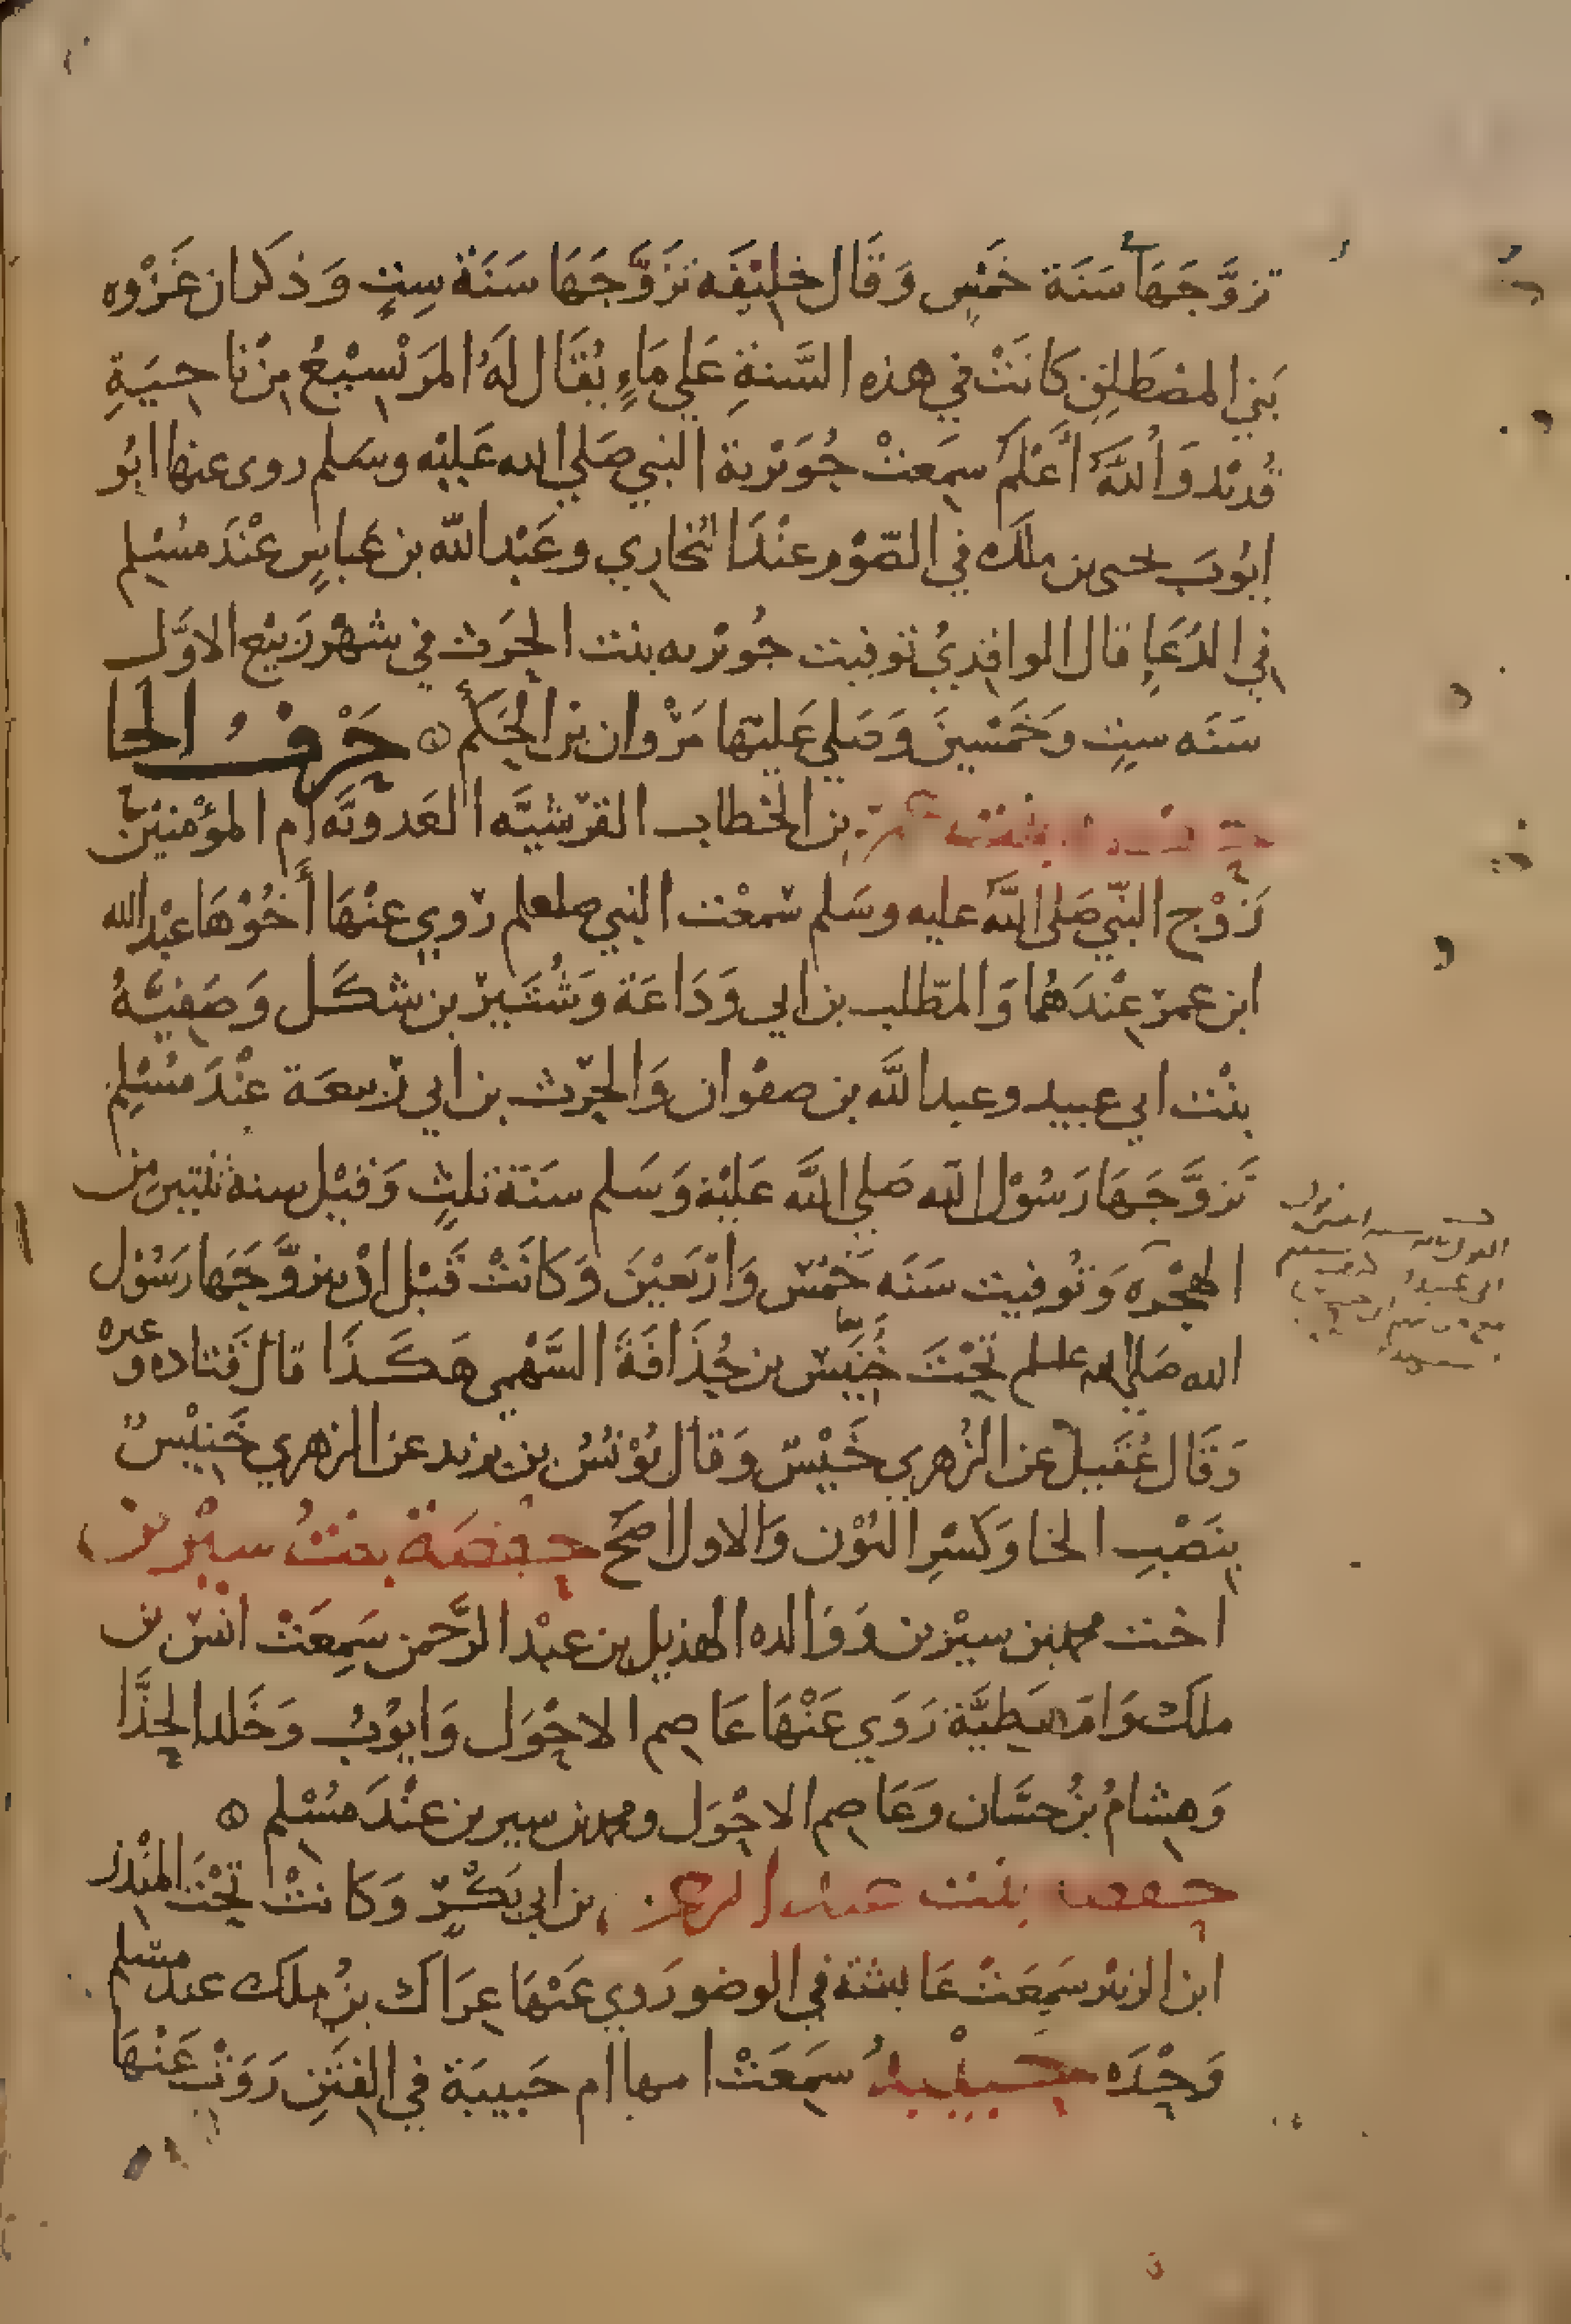 تزوَّجَهَا سَنَة خَمْسٍ وَقَال خليْفَه تزَوَّجَهَا سَنَة سِتٍ وَذكر ان غَزْوه
بَني المصْطَلِقِ كَانَتْ في هذه السَّنةِ عَلي مَاءٍ يُقَال لَهُ المرَيْسِيْعُ مِنْ نَاحيَةِ
قُدَيْد وَاللَّهُ أَعْلَمُ سمِعَتْ جُوَيْرية النبي صَلي الله عَليْه وسَلم روى عنها ابُو
ايُوبَ يحيى بن ملك في الصَّوْم عنْدَ البُخاري وعَبْد اللَّه بن عَباسٍ عنْدَ مسْلم
في الدُعَاءِ قال الواقديُ توفيت جُويْريه بنت الحرَث في شهْر رَبيْع الاوَّل
سَنَه سِتٍ وَخَمْسينَ وَصَلي عَليْها مَرْوان بن الحَكَم حَرْفُ الحَا
حفصة بنت عمر بن الخطاب القرشيَّه العَدويَّه ام المؤْمنيْن
زَوْج النَّبي صَلى اللَّه عليه وسَلم سَمعْت النبي صلعلم رَوي عنْهَا أَخُوْهَا عبْد الله
ابن عمر عِنْدَهُما وَالمطّلب بن ابي وَدَاعَة وَشُتَيْر بن شكَل وَصَفيَّهُ
بنْت ابي عبيد وعبد اللَّه بن صفْوان وَالحرْث بن ابي رَبيعَة عنْدَ مسْلِمٍ
تَزوَّجَهَا رَسُوْل اللَّه صَلي اللَّه عَليْه وَسَلم سَنَة ثلثٍ وَقيْل سنه ثنتين من
الهجْرَه وَتُوفيت سَنَه خَمْسٍ وَارْبَعيْنَ وَكَانَتْ قَبْل ان يتزوَّجَهَا رَسُوْل
الله صَلي الله عليلم تَحْتَ خُنَيْسِ بن حُذَافَةَ السَّهْمي هَكَذَا قال قَتاده وغيره
وَقَال عُقَيل عن الزُهري خَنيْس وَقال يُوْنُسُ بن يزيد عن الزهري خَنِيْسٌ
بِنَصْبِ الخا وَكسْرِ النُوْن وَالاول اصَحَّ حفصَة بنتُ سيْرين
اخت محمد بن سيْرين وَوَالده الهذيل بن عبْد الرَّحمن سَمِعَتْ انَس بن
ملك وَامَّ عَطيَّة رَوَي عَنْهَا عَاصم الاحْوَل وَايوْبُ وَخَلد الحذَّا
وَهِشامُ بنُ حسَّان وَعَاصم الاحْوَل ومحمد بن سيرين عنْدَ مسْلم
حفصة بنت عبد الرحمن بن ابي بَكْرٍ وَكَانتْ تَحْتَ المنْذر
ابن الزبير سَمِعَتْ عَايشَة في الوضو رَوي عَنْهَا عِرَاك بنُ ملك عند مسْلم
وَحْدَه حَبيْبةُ سَمِعَتْ امها ام حَبيبَة في الفتَنِ رَوَتْ عَنْهَا